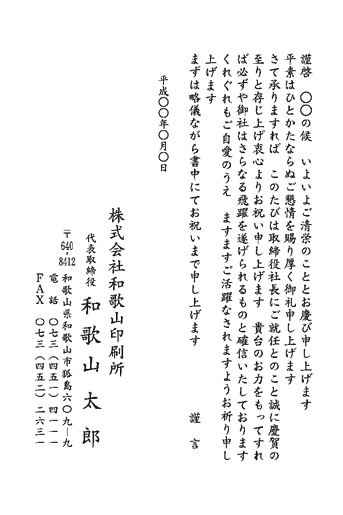 謹啓　〇〇の候　いよいよご清栄のこととお慶び申し上げます
平素はひとかたならぬご懇情を賜り厚く御礼申し上げます
さて承りますれば　このたびは取締役社長にご就任とのこと誠に慶賀の
至りと存じ上げ衷心よりお祝い申し上げます　貴台のお力をもってすれ
ば必ずや御社はさらなる飛躍を遂げられるものと確信いたしております
くれぐれもご自愛のうえ　ますますご活躍なされますようお祈り申し
上げます
まずは略儀ながら書中にてお祝いまで申し上げます　謹言
平成〇〇年〇月〇日
株式会社和歌山印刷所
代表取締役　和歌山太郎
〒640-8412　和歌山県和歌山市狐島六〇九―九
電話　〇七三（四五一）四一一一
FAX　〇七三（四五二）二六三一